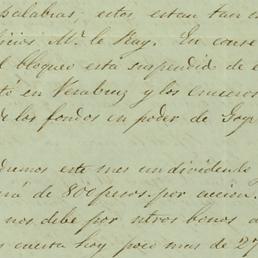 palabras, estos estan tan
Mr. le Ray. En conse
l bloqueo está suspendido de
tó en Veracruz y los cruceros
de los fondos en poder de Goyr
remos este mes un dividendo
rá de 800 pesos por accion.
nos debe por ntros bonos
s cuenta hoy poco mas de 27